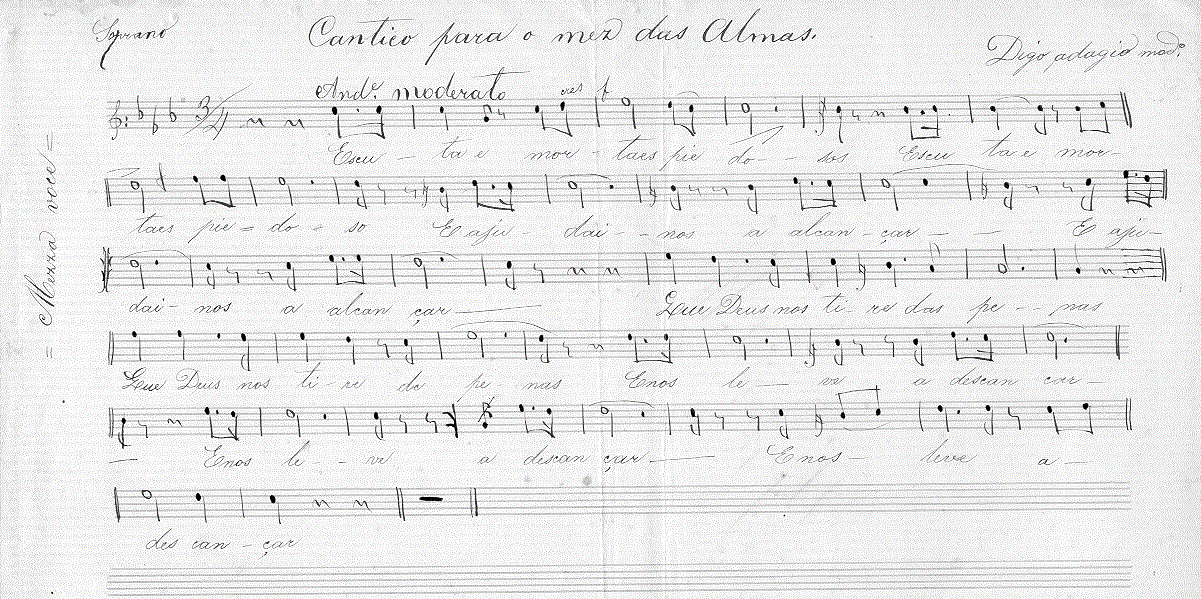 Soprano
Cantico para o mez das Almas.
Digo adagio mod.º
And.e moderato
cres f
= Mezza voce =
3/4
Escu - ta e mor - taes pie do - - sos Escu ta e mor -
taes pie = do = so E aju - dai - - nos a alcan - çar - -
E aju -
dai - nos a alcan çar — Que Deus nos ti - re das pe - - nas
Que Deus nos ti - re da pe nas E nos le — ve a descan car -
— E nos le - - ve a descan çar — E nos - leve a -
des can - çar